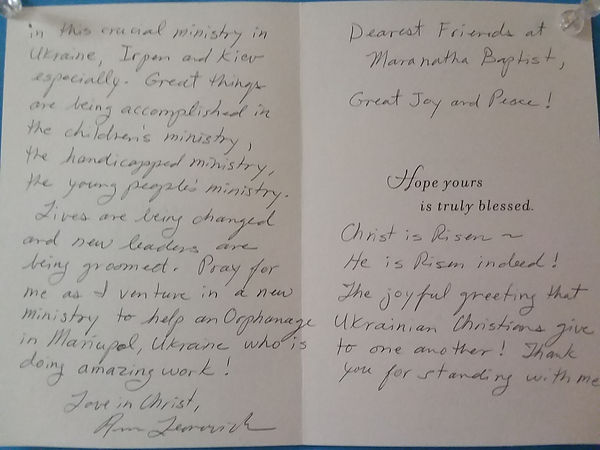 Dearest Friends at
Maranatha Baptist,
Great Joy and Peace!
Hope yours
is truly blessed.
Christ is Risen ~
He is Risen indeed!
The joyful greeting that
Ukrainian Christians give
to one another! Thank
you for standing with me
in this crucial ministry in
Ukraine, Irpen and Kiev
especially. Great things
are being accomplished in
the children's ministry,
the handicapped ministry,
the young people's ministry.
Lives are being changed
and new leaders are
being groomed. Pray for
me as I venture in a new
ministry to help an Orphanage
in Mariupol, Ukraine who is
doing amazing work!
Love in Christ,